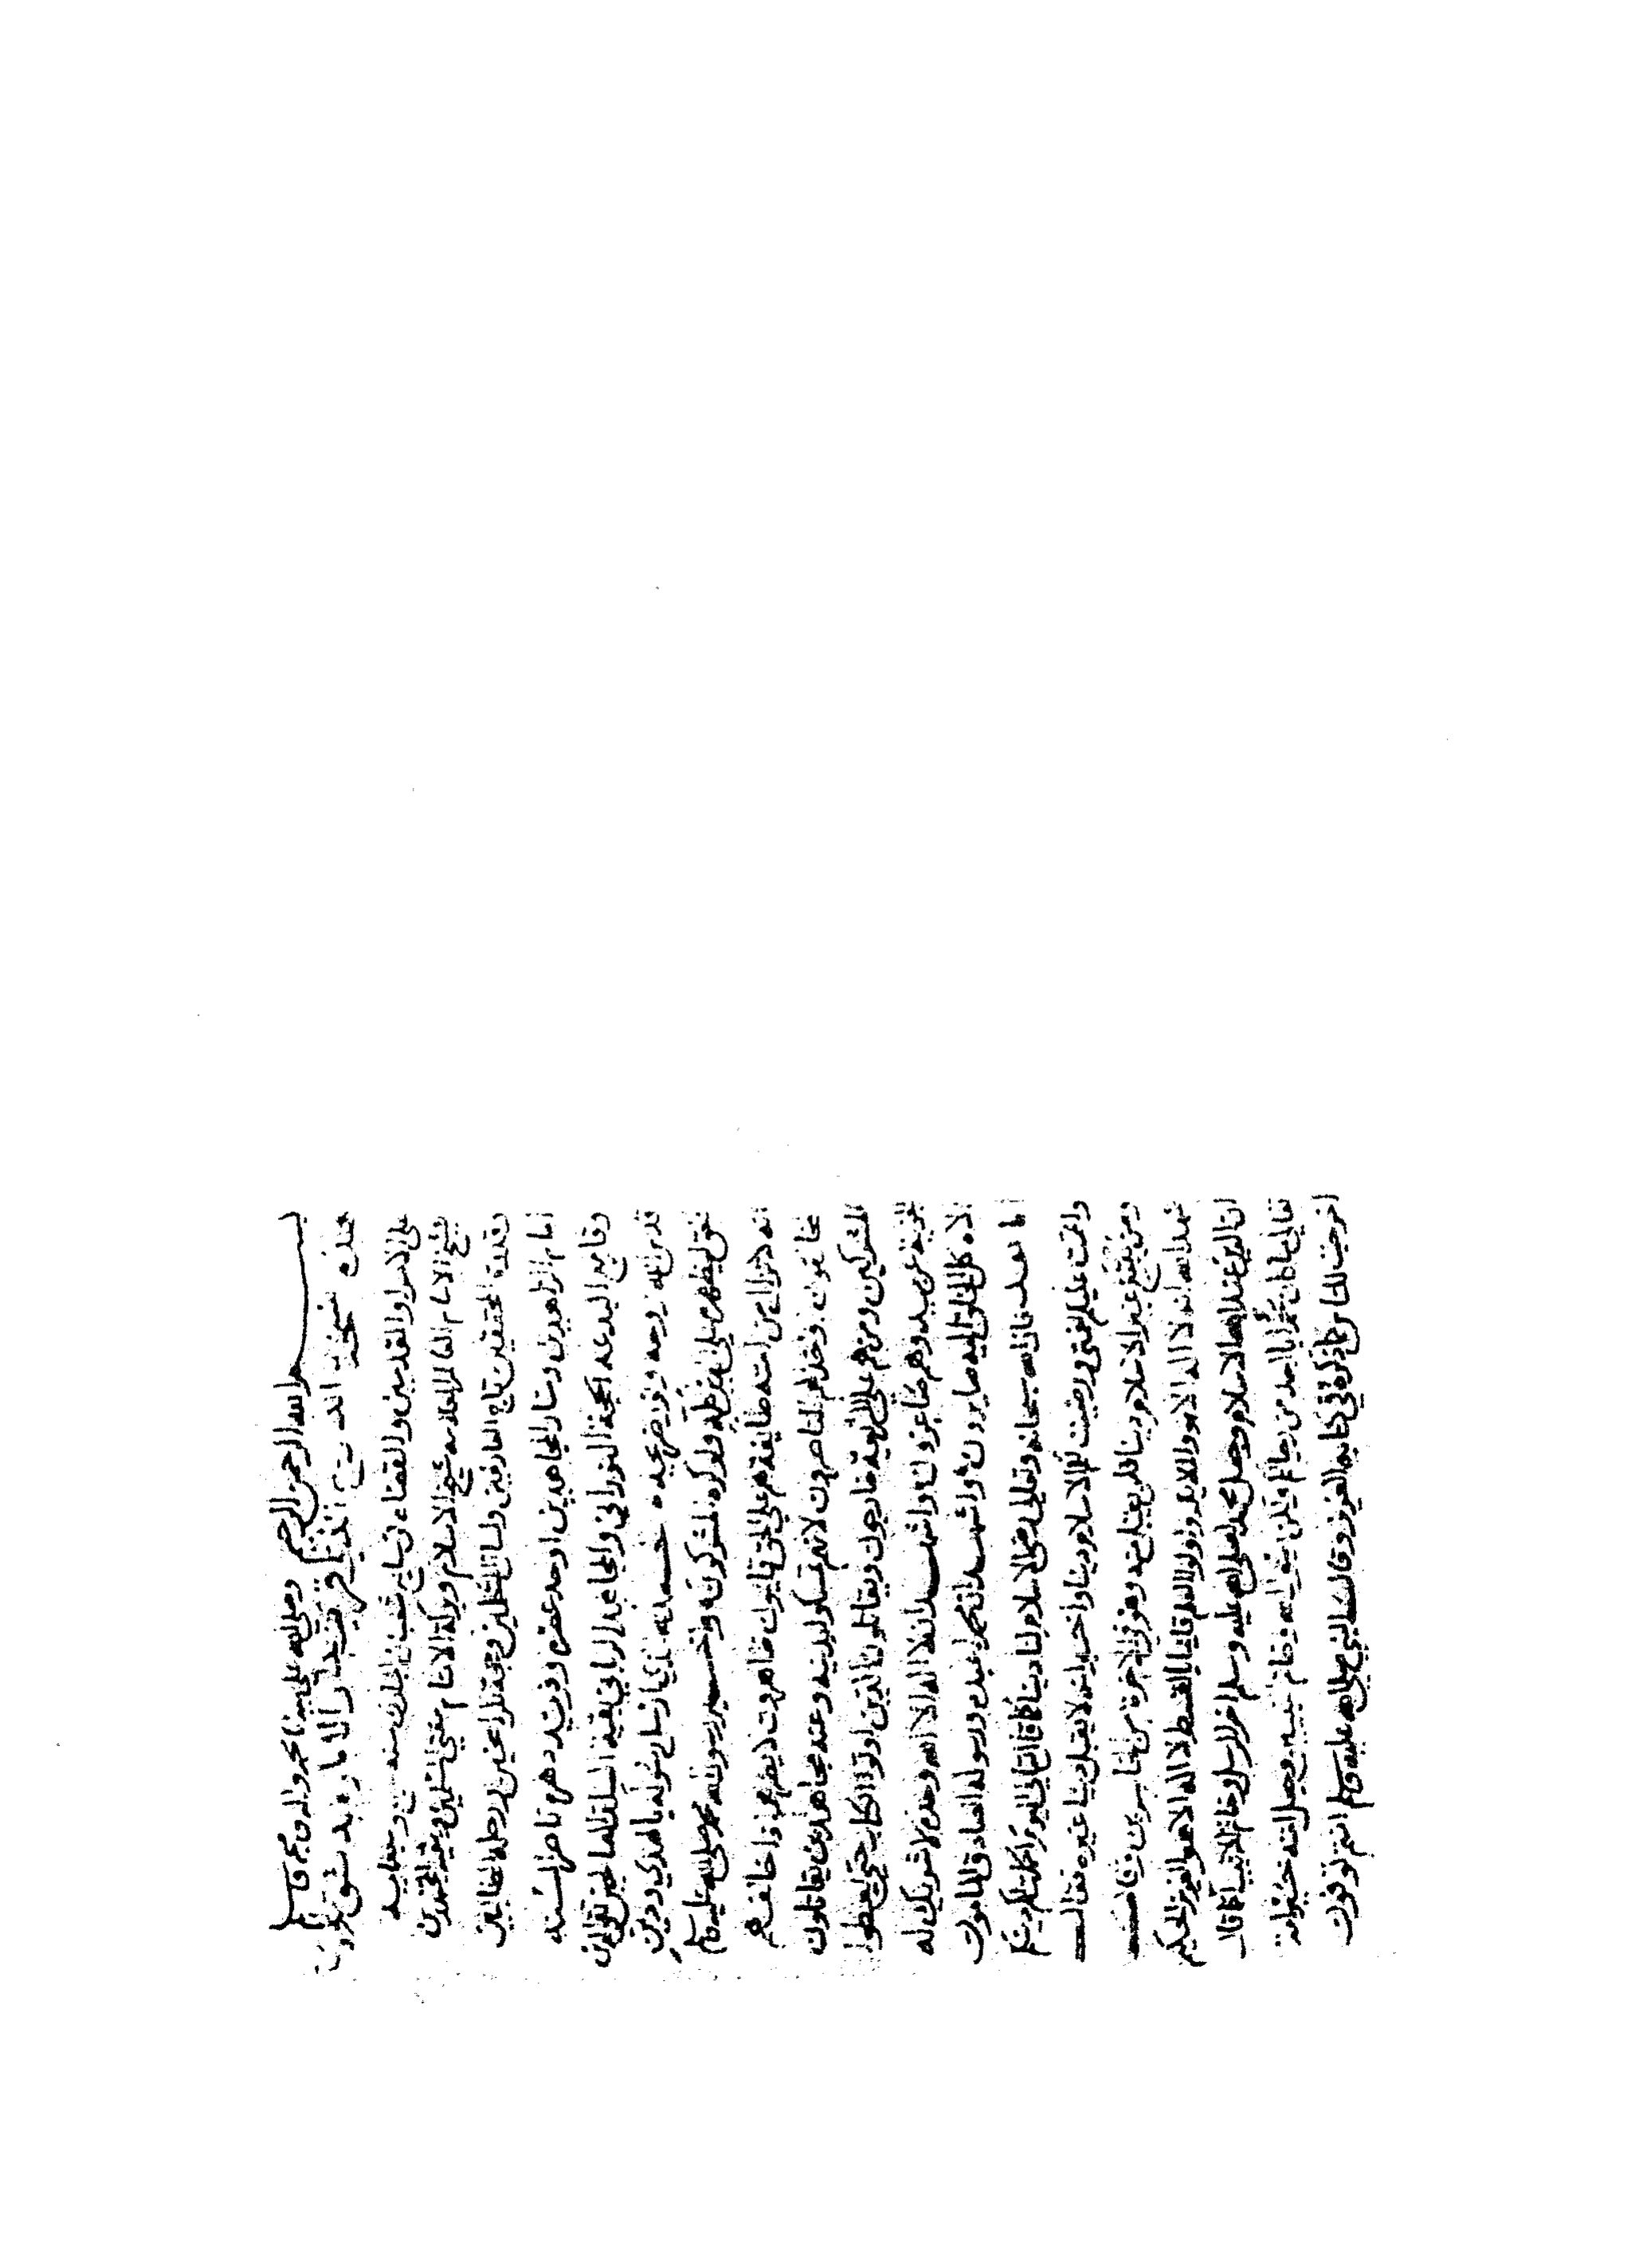 بسم الله الرحمن الرحيم وصلى الله على سيدنا محمد واله وصحبه وسلم
هذه نسخة
على الاسرا والقدسين والقضاه في ساير
شيخ الامام العالم العلامه شيخ الاسلام وبركة الانام مفتي المسلمين وبقية المجتهدين
وقدوة المحققين تاج العارفين ولسان المتكلمين ورحلة الطالبين
امام الزاهدين ومنار المجاهدين اوحد عصره وفريد دهره ناصر السنه
وقامع البدعه الحجة النوراني والمجاهد الرباني بقية السلف الصالحين تقي الدين
قدس الله روحه ونور ضريحه الحمد لله الذي ارسل رسوله بالهدى ودين
الحق ليظهره على الدين كله ولو كره المشركون واخبر رسول الله محمد صلى الله عليه وسلم
انه لا تزال من امته طايفة هم على الحق قايمون ظاهرون لا يضرهم اذا خالفهم
مخالفون وخذلهم الناصرون لانهم تمسكوا بدينه وعند مجاهدين يقاتلون
المشركين ومن هم على الشريعة خارجون ويقاتلون الذين اوتوا الكتاب حتى يعطوا
الجزية عن يد وهم صاغرون واشهد ان لا اله الا الله وحده لا شريك له
الاه كل الخلق اليه صايرون واشهد ان محمدا عبده ورسوله الصادق المامون
اما بعد فان الله سبحانه وتعالى رضي الاسلام لنا دينا كما قال تعالى اليوم اكملت لكم دينكم
واتممت عليكم نعمتي ورضيت لكم الاسلام دينا واخبر انه لا يقبل دينا غيره فقال
ومن يبتغ غير الاسلام دينا فلن يقبل منه وهو في الاخرة من الخاسرين وقال
شهد الله انه لا اله الا هو والملايكة واولوا العلم قايما بالقسط لا اله الا هو العزيز الحكيم
ان الدين عند الله الاسلام وجعل محمد صلى الله عليه وسلم اخر الرسل وخاتم الانبيا كما قال
تعالى ما كان محمد ابا احد من رجالكم ولكن رسول الله وخاتم النبيين وجعل امته خير امة
اخرجت للناس كما ذكره في كتابه العزيز وقال النبي صلى الله عليه وسلم انتم توفون